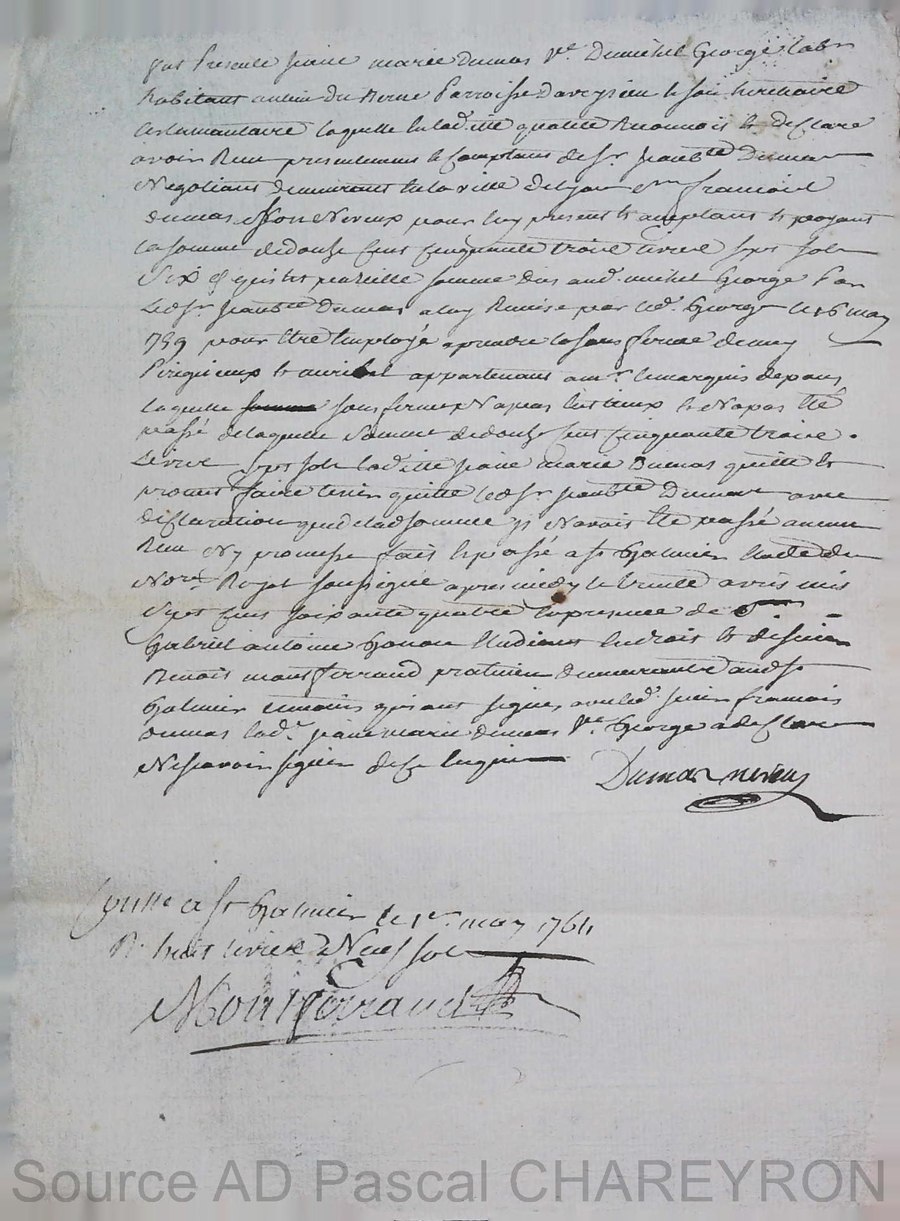 fut presente jeane marie dumas v.e de michel George lab.r
habitant au lieu du Berne parroisse d'aveysieu le son heritiaire
testamantaire laquelle en lad.itte qualité Reconnois et desclare
avoir Reçu presentement et comptans de s.r jean b.te Dumas
Negotians demeurant en la ville de lyon s.r francois
dumas son Neveux pour luy present et acceptant et payant
la somme de douze cens cinquante troix livres sept sols
six d. pareille somme aud. michel George par
led. s.r jean b.te Dumas a luy Remise par led. George le 16 may
759 pour être employé a prendre la sous ferme de
Périgneux et appartenant a m.r le marquis de
laquelle sous ferme N'a pas eut lieux et N'a pas été
passé de laquelle somme de douze cens cinquante troix
livres sept sols lad.itte jeane marie Dumas quitte et
promet faire tenir quitte led. s.r jean b.te Dumas avec
desclaration que de lad. somme il N'avait été passé aucun
Reçu Ny promesse fait et passé a s.t Galmier etude du
No.re Royal soussigné apres midy le trente avril mil
sept cens soixante quatre en presence de s.r
Gabriel antoine etudiant en droit et de sieur
Benoit montferrand praticien demeurants aud. s.t
Galmier temoins qui ont signés avec led. sieur francois
dumas lad. jeane marie dumas v.e George a desclaré
Ne scavoir signer de ce enquise
Dumas neveu
Con.lle a s.t Galmier le 1er may 1764
R. huit livres Neuf sols
Montferrand
Source AD Pascal CHAREYRON